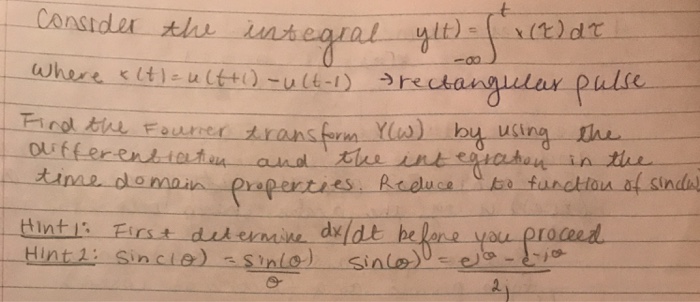 Consider the integral y(t) = ∫_{-∞}^{t} x(τ)dτ
where x(t) = u(t+1) - u(t-1) → rectangular pulse
Find the Fourier transform Y(ω) by using the
differentiation and the integration in the
time domain properties. Reduce to function of sinc(ω)
Hint 1: First determine dx/dt before you proceed
Hint 2: sinc(θ) = sin(θ)/θ sin(θ) = e^{jθ} - e^{-jθ}/2j